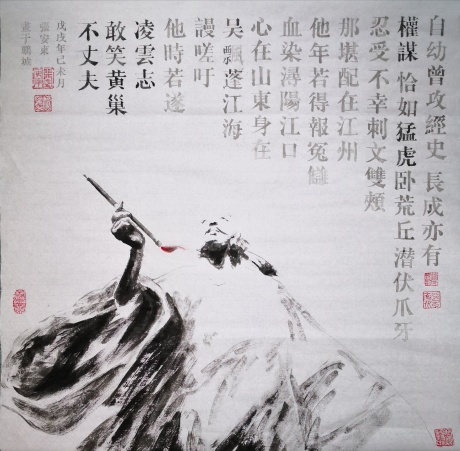 自幼曾攻經史 長成亦有
權謀 恰如猛虎卧荒丘 潛伏爪牙
忍受 不幸刺文雙頰
那堪配在江州
他年若得報冤讎
血染潯陽江口
心在山東身在
吴 飄蓬江海
謾嗟吁
他時若遂
凌雲志
敢笑黄巢
不丈夫
戊戌年己未月
張安東
畫于鵬城